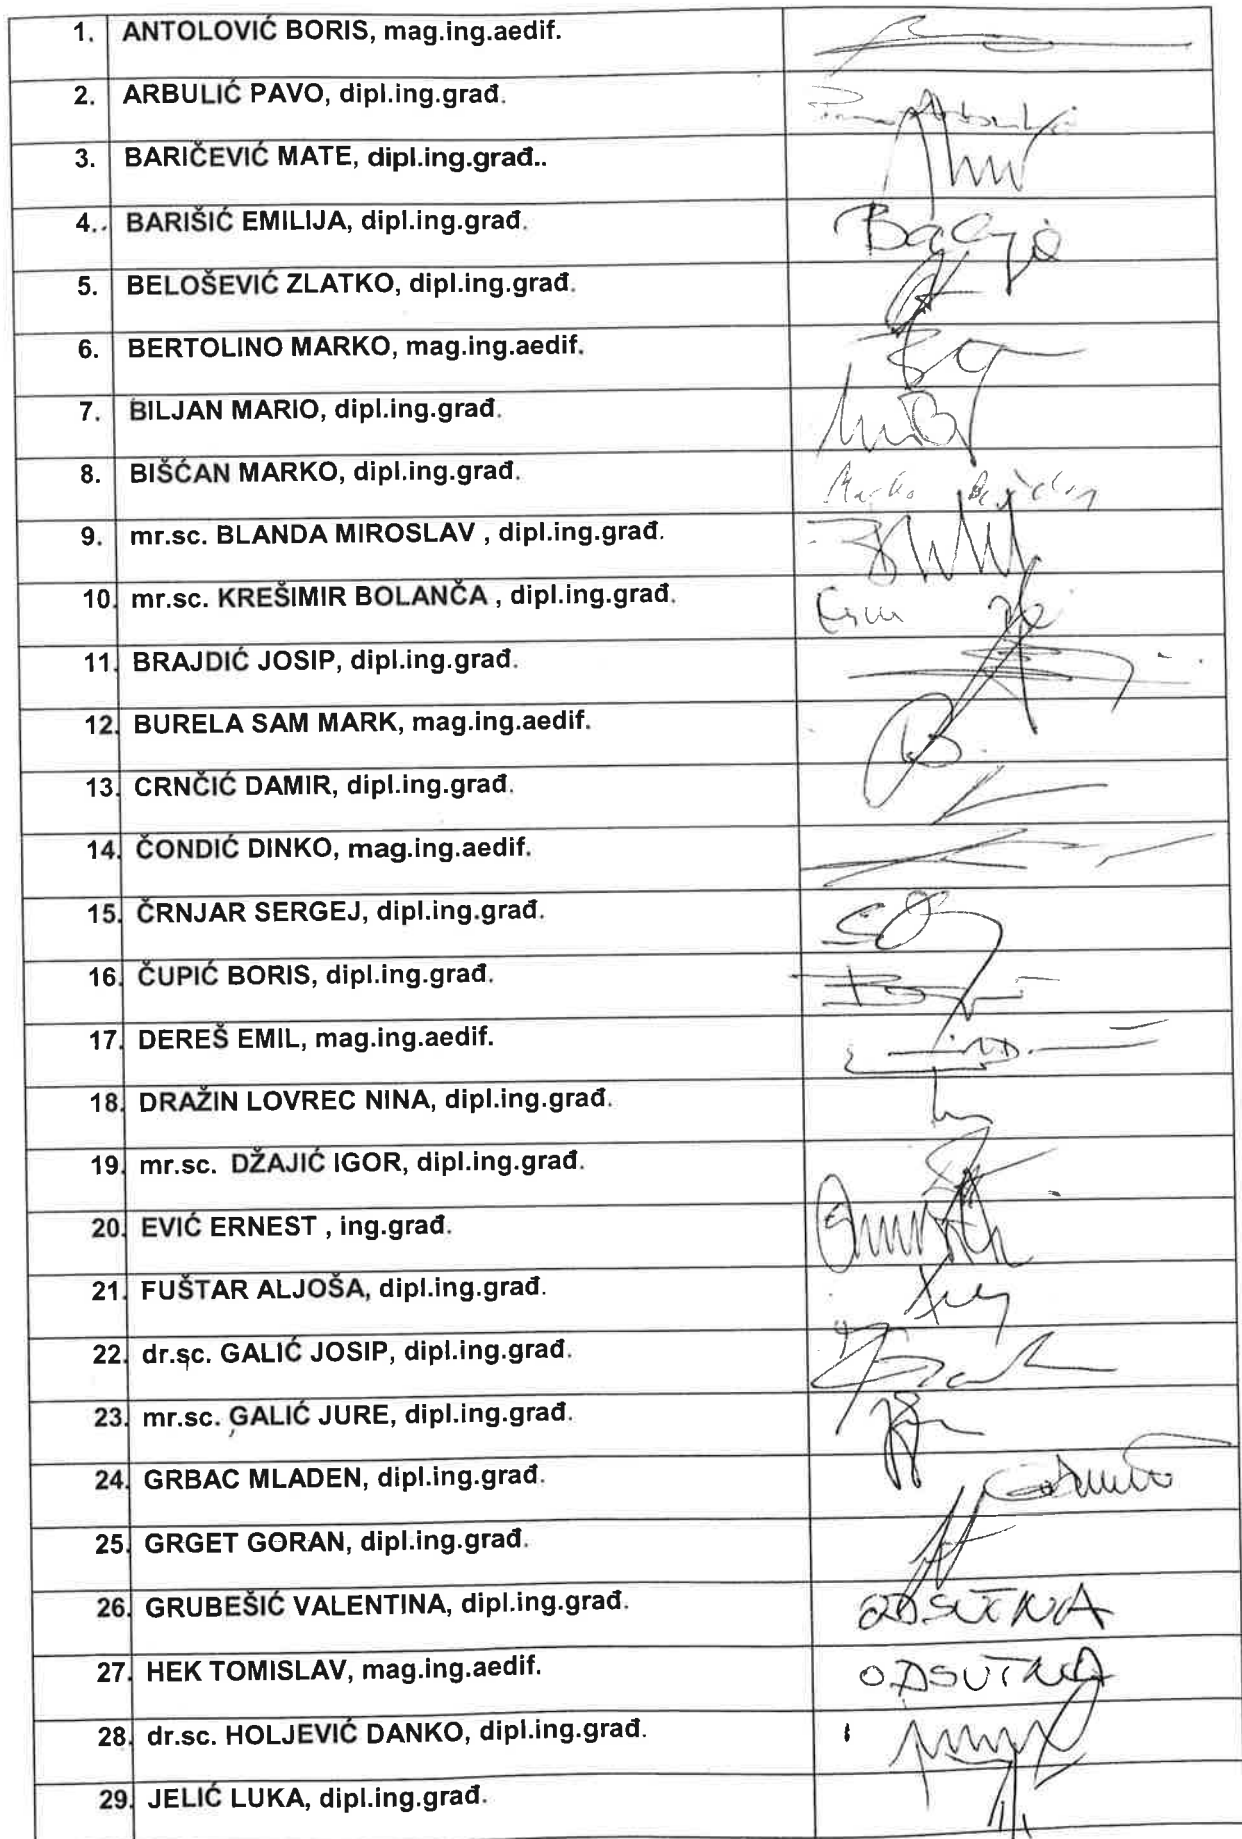 1. ANTOLOVIĆ BORIS, mag.ing.aedif.
2. ARBULIĆ PAVO, dipl.ing.građ.
3. BARIČEVIĆ MATE, dipl.ing.građ..
4.. BARIŠIĆ EMILIJA, dipl.ing.građ.
5. BELOŠEVIĆ ZLATKO, dipl.ing.građ.
6. BERTOLINO MARKO, mag.ing.aedif.
7. BILJAN MARIO, dipl.ing.građ.
8. BIŠĆAN MARKO, dipl.ing.građ. Marko
9. mr.sc. BLANDA MIROSLAV , dipl.ing.građ.
10. mr.sc. KREŠIMIR BOLANČA , dipl.ing.građ.
11. BRAJDIĆ JOSIP, dipl.ing.građ.
12. BURELA SAM MARK, mag.ing.aedif.
13. CRNČIĆ DAMIR, dipl.ing.građ.
14. ČONDIĆ DINKO, mag.ing.aedif.
15. ČRNJAR SERGEJ, dipl.ing.građ.
16. ČUPIĆ BORIS, dipl.ing.građ.
17. DEREŠ EMIL, mag.ing.aedif.
18. DRAŽIN LOVREC NINA, dipl.ing.građ.
19. mr.sc. DŽAJIĆ IGOR, dipl.ing.građ.
20. EVIĆ ERNEST , ing.građ.
21. FUŠTAR ALJOŠA, dipl.ing.građ.
22. dr.sc. GALIĆ JOSIP, dipl.ing.građ.
23. mr.sc. GALIĆ JURE, dipl.ing.građ.
24. GRBAC MLADEN, dipl.ing.građ.
25. GRGET GORAN, dipl.ing.građ.
26. GRUBEŠIĆ VALENTINA, dipl.ing.građ. ODSUTNA
27. HEK TOMISLAV, mag.ing.aedif. ODSUTNA
28. dr.sc. HOLJEVIĆ DANKO, dipl.ing.građ.
29. JELIĆ LUKA, dipl.ing.građ.